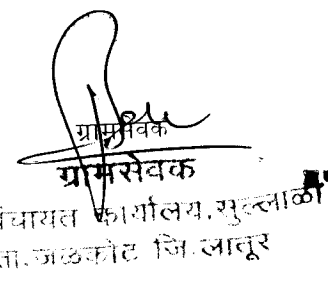 ग्रामसेवक
ग्रामसेवक
पंचायत कार्यालय, सुल्लाळी
ता. जळकोट जि. लातूर